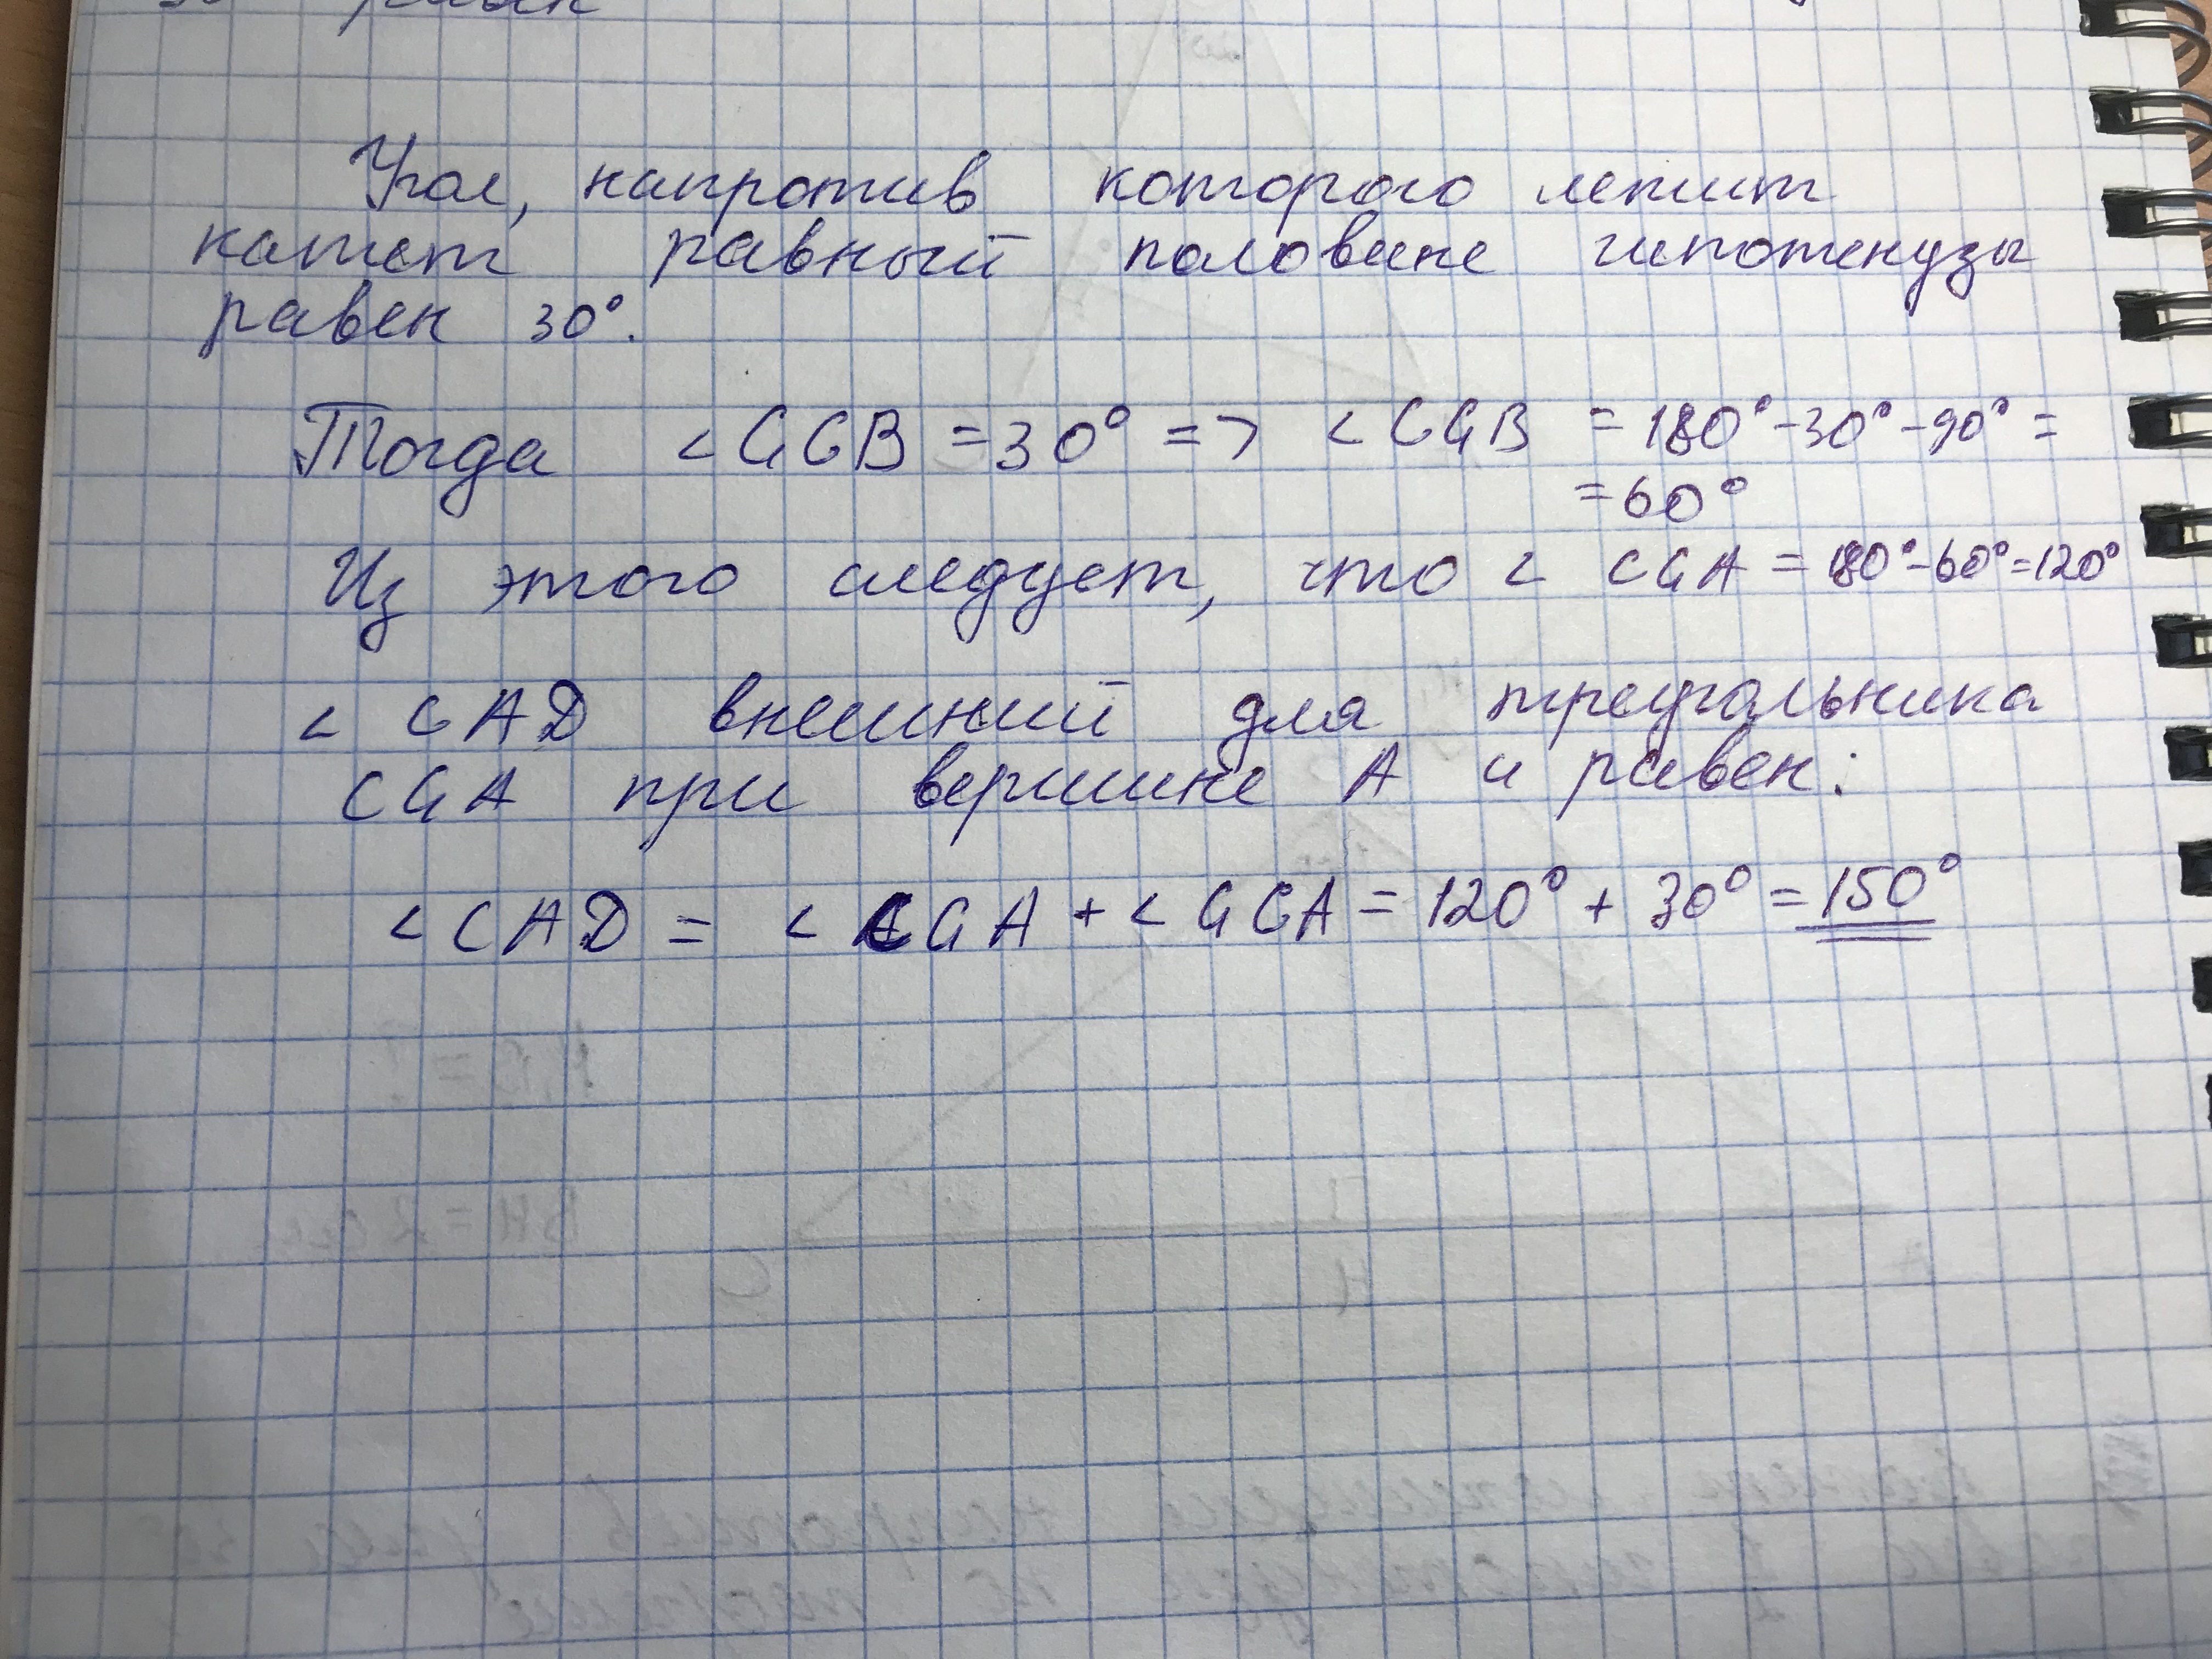 Угол, напротив которого лежит
катет равный половине гипотенузы
равен 30°.
Тогда <GCB = 30° => <CGB = 180° - 30° - 90° =
= 60°
Из этого следует, что < CGA = 180° - 60° = 120°
< CAD внешний для треугольника
CGA при вершине A и равен:
<CAD = < CGA + < GCA = 120° + 30° = 150°